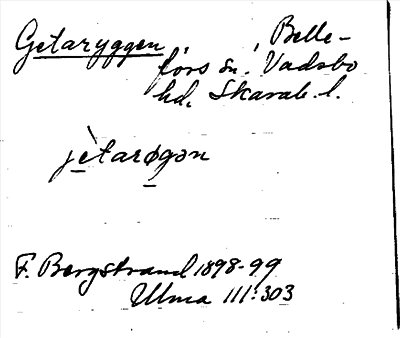 Getaryggen, , Belle-
fors sn. Vadsbo
hd. Skarab. l.
jètarøgən
F. Bergstrand 1898-99
Ulma 111:303